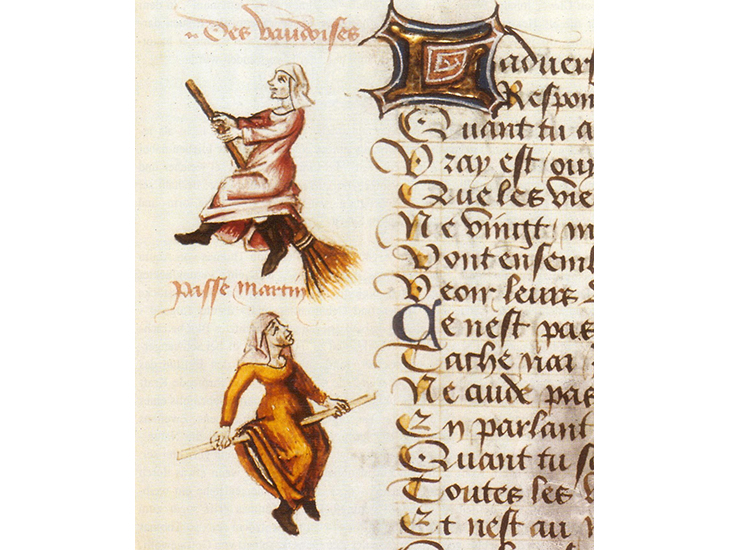 Des vaudoises
passe martin
aduers
Respon
Quant tu a
Vray est / ouy
Que les vie
Ne vingt / m
Vont ensemb
Veoir leurs
Ce nest pas
Tache nai
Ne cuide pas
En parlant
Quant tu s
Toutes les
Et nest au